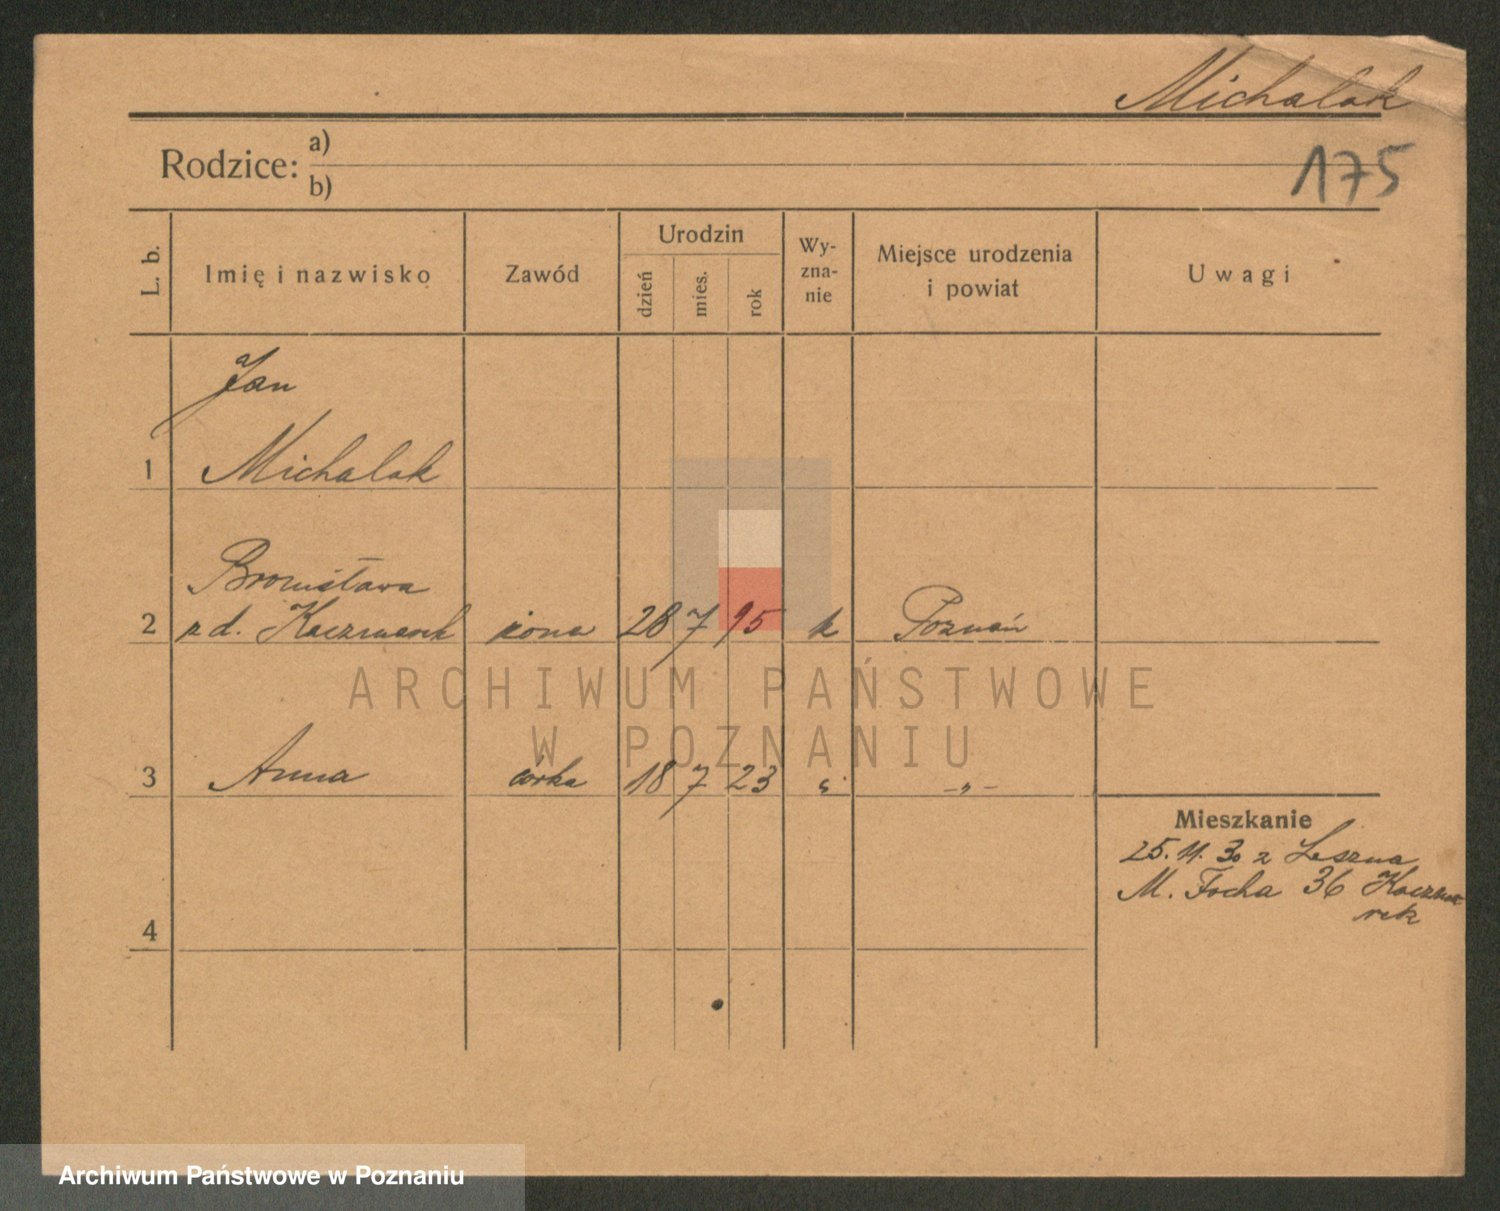 Michalak
175
Rodzice: a)
b)
L. b. Imię i nazwisko Zawód Urodzin dzień mies. rok Wy-zna-nie Miejsce urodzenia i powiat Uwagi
Jan
1 Michalak
Bronisława
2 z d. Kaczmarek żona 28 7 95 k Poznań
ARCHIWUM PAŃSTWOWE
W POZNANIU
3 Anna córka 18 7 23 " -"-
Mieszkanie
25. 11. 30 z Leszna
M. Focha 36 Kaczma
rek
4
Archiwum Państwowe w Poznaniu